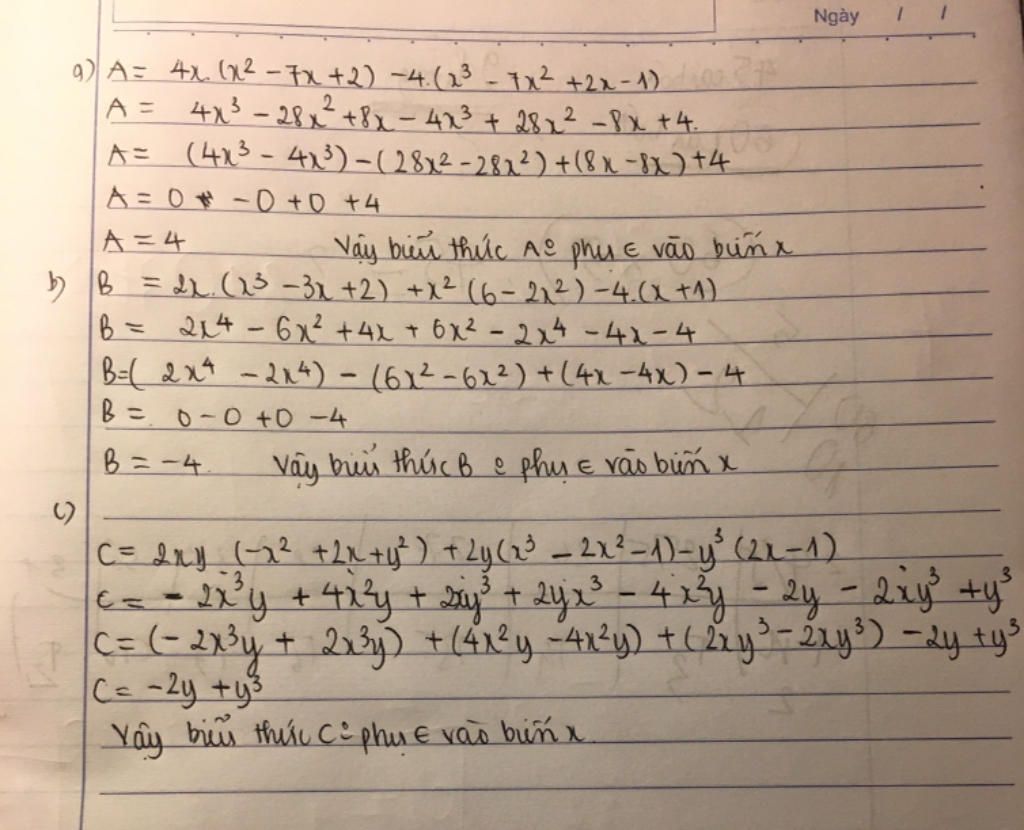 Ngày / /
a) A = 4x.(x² - 7x + 2) - 4.(x³ - 7x² + 2x - 1)
A = 4x³ - 28x² + 8x - 4x³ + 28x² - 8x + 4.
A = (4x³ - 4x³) - (28x² - 28x²) + (8x - 8x) + 4
A = 0 - 0 + 0 + 4
A = 4 Vậy biểu thức A º phụ ∈ vào biến x
b) B = 2x.(x³ - 3x + 2) + x² (6 - 2x²) - 4.(x + 1)
B = 2x⁴ - 6x² + 4x + 6x² - 2x⁴ - 4x - 4
B = ( 2x⁴ - 2x⁴) - (6x² - 6x²) + (4x - 4x) - 4
B = 0 - 0 + 0 - 4
B = -4. Vậy biểu thức B º phụ ∈ vào biến x
c)
C = 2xy (-x² + 2x + y²) + 2y(x³ - 2x² - 1) - y³ (2x - 1)
C = - 2x³y + 4x²y + 2xy³ + 2yx³ - 4x²y - 2y - 2xy³ + y³
C = (- 2x³y + 2x³y) + (4x²y - 4x²y) + (2xy³ - 2xy³) - 2y + y³
C = -2y + y³
Vậy biểu thức C º phụ ∈ vào biến x